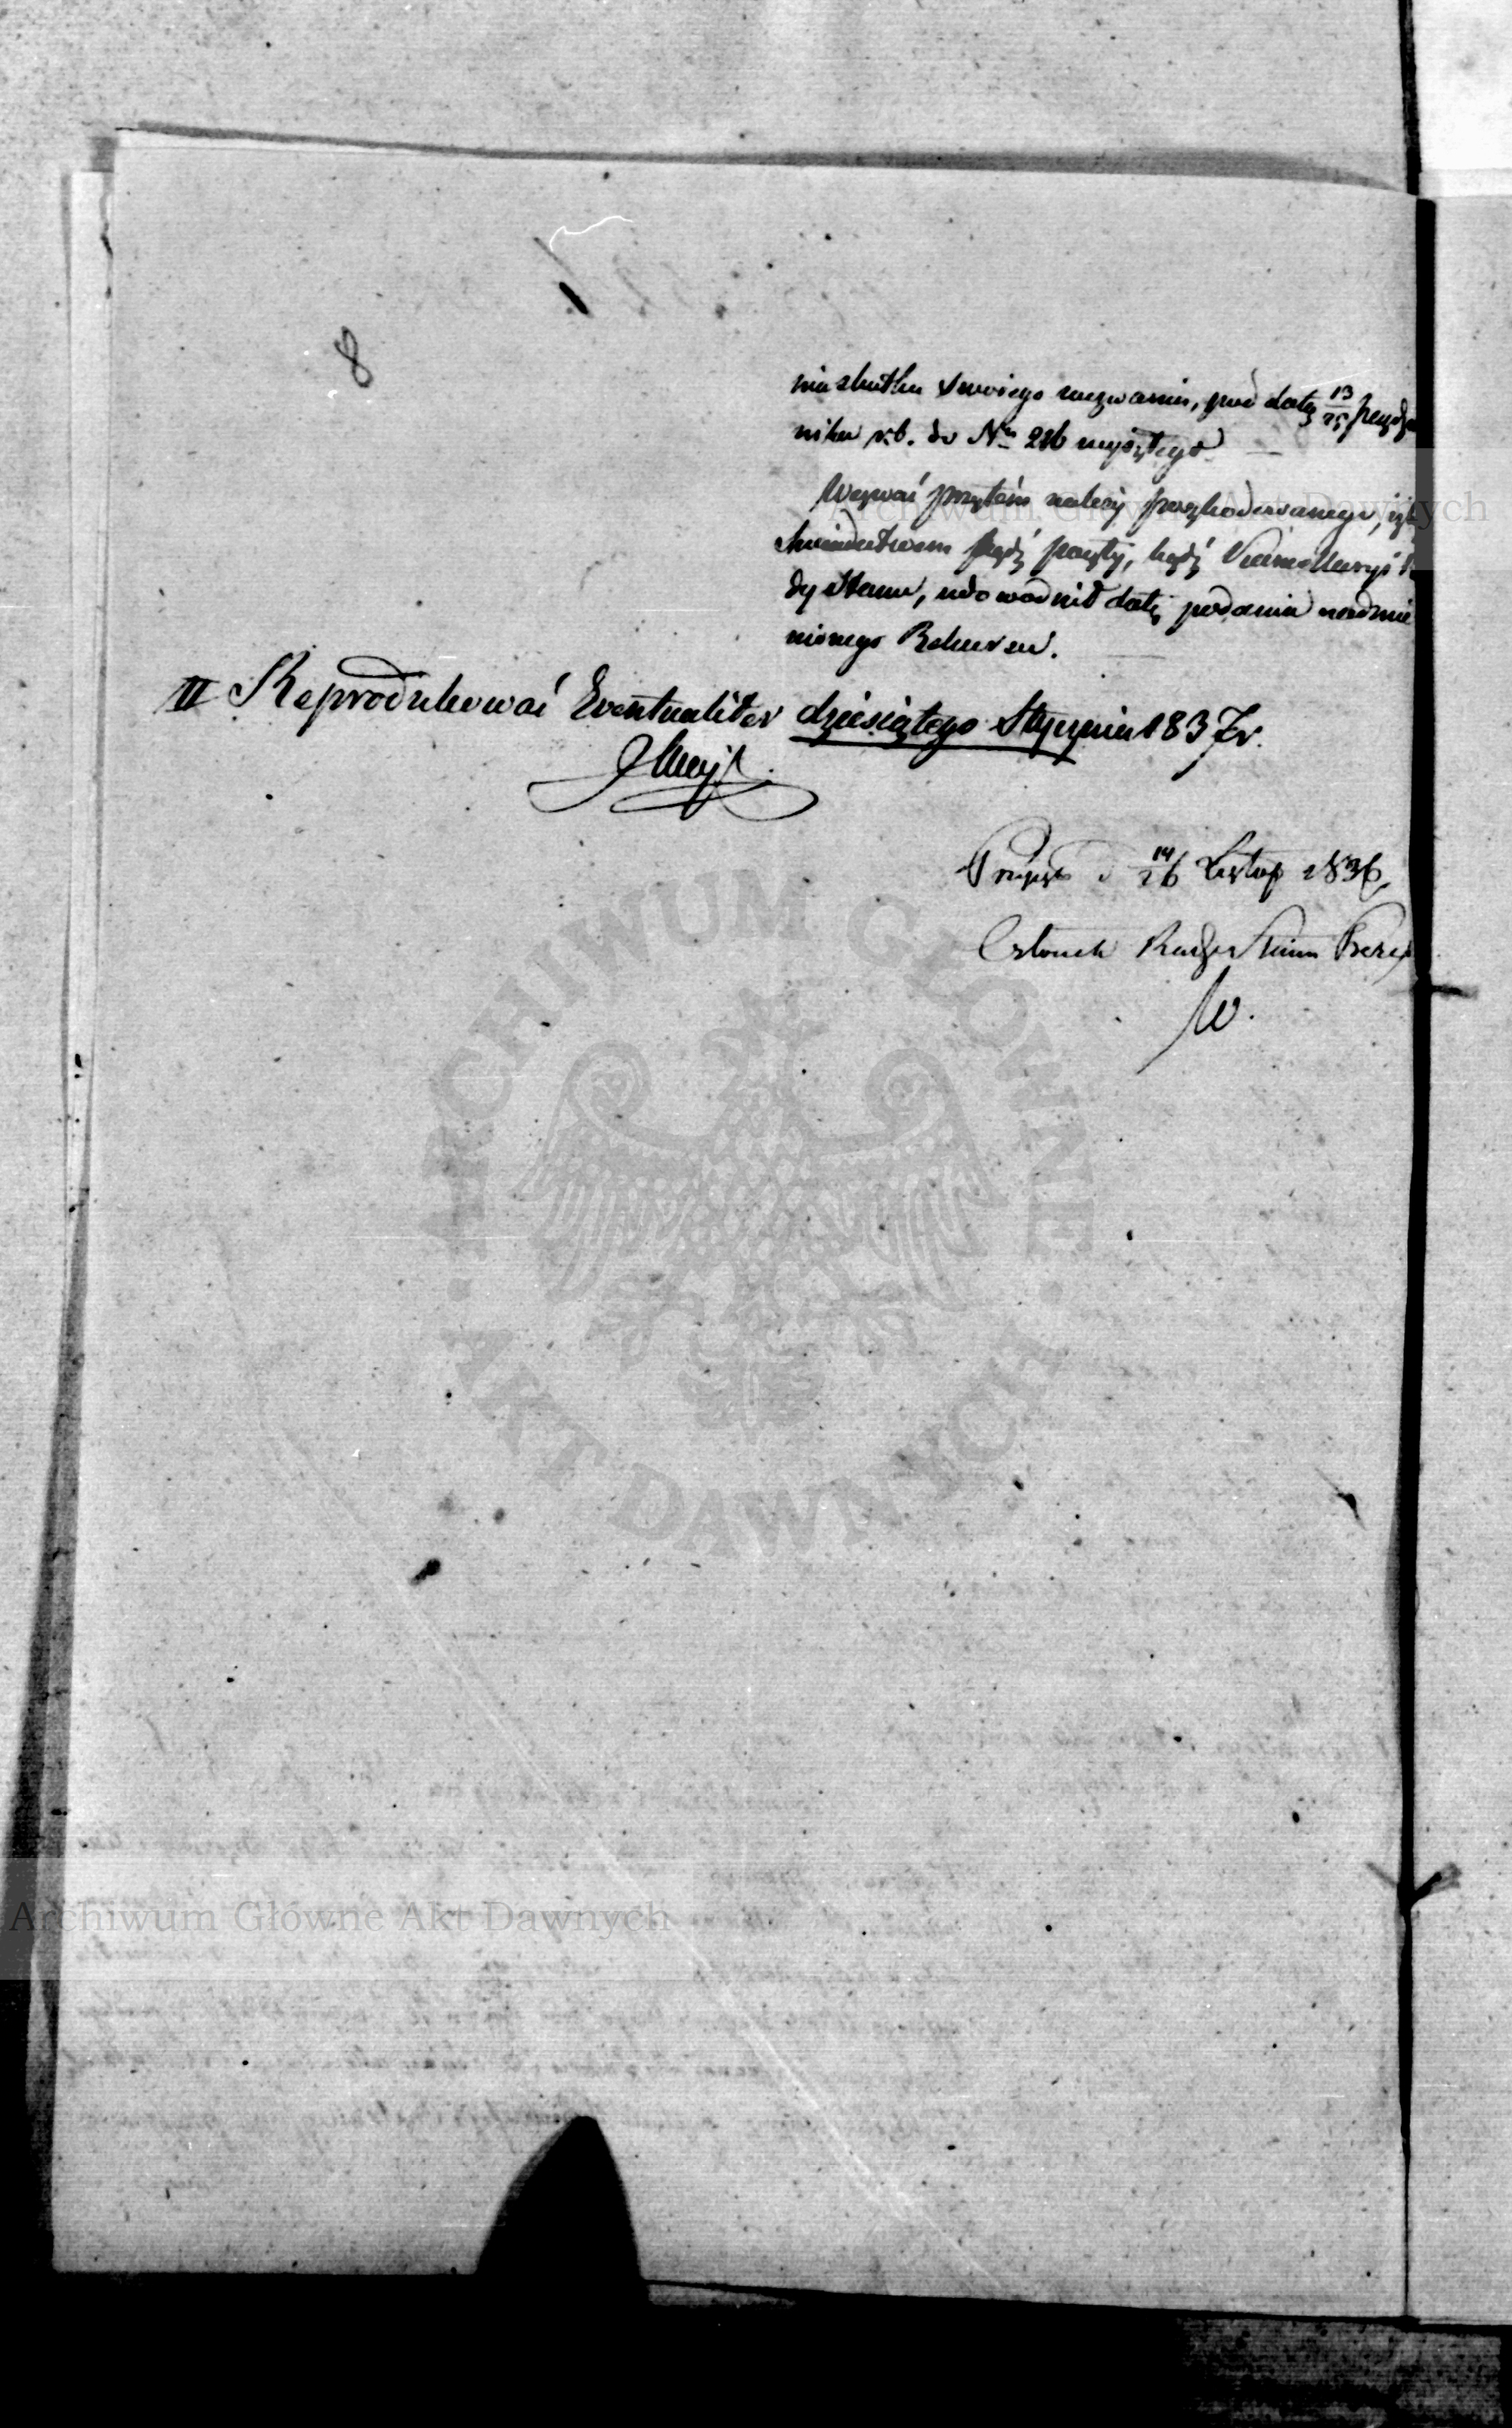 8
nia skutku swoiego wezwania, pod datą 13/25 Paździer
nika r.b. do Nru 216 wyszłego
Wezwać przytém należy poszkodowanego, iżby
świadectwem bądź poczty, bądź Kancellaryi Ra
dy Stanu, udowodnił datę podania nadmie
nionego Rekursu.
II Reprodukować Eventualiter dziesiątego Stycznia 1837 r.
14/26 Listop 1836
Członek Rady Stanu
W.
ARCHIWUM GŁÓWNE
AKT DAWNYCH
Archiwum Główne Akt Dawnych
Archiwum Główne Akt Dawnych